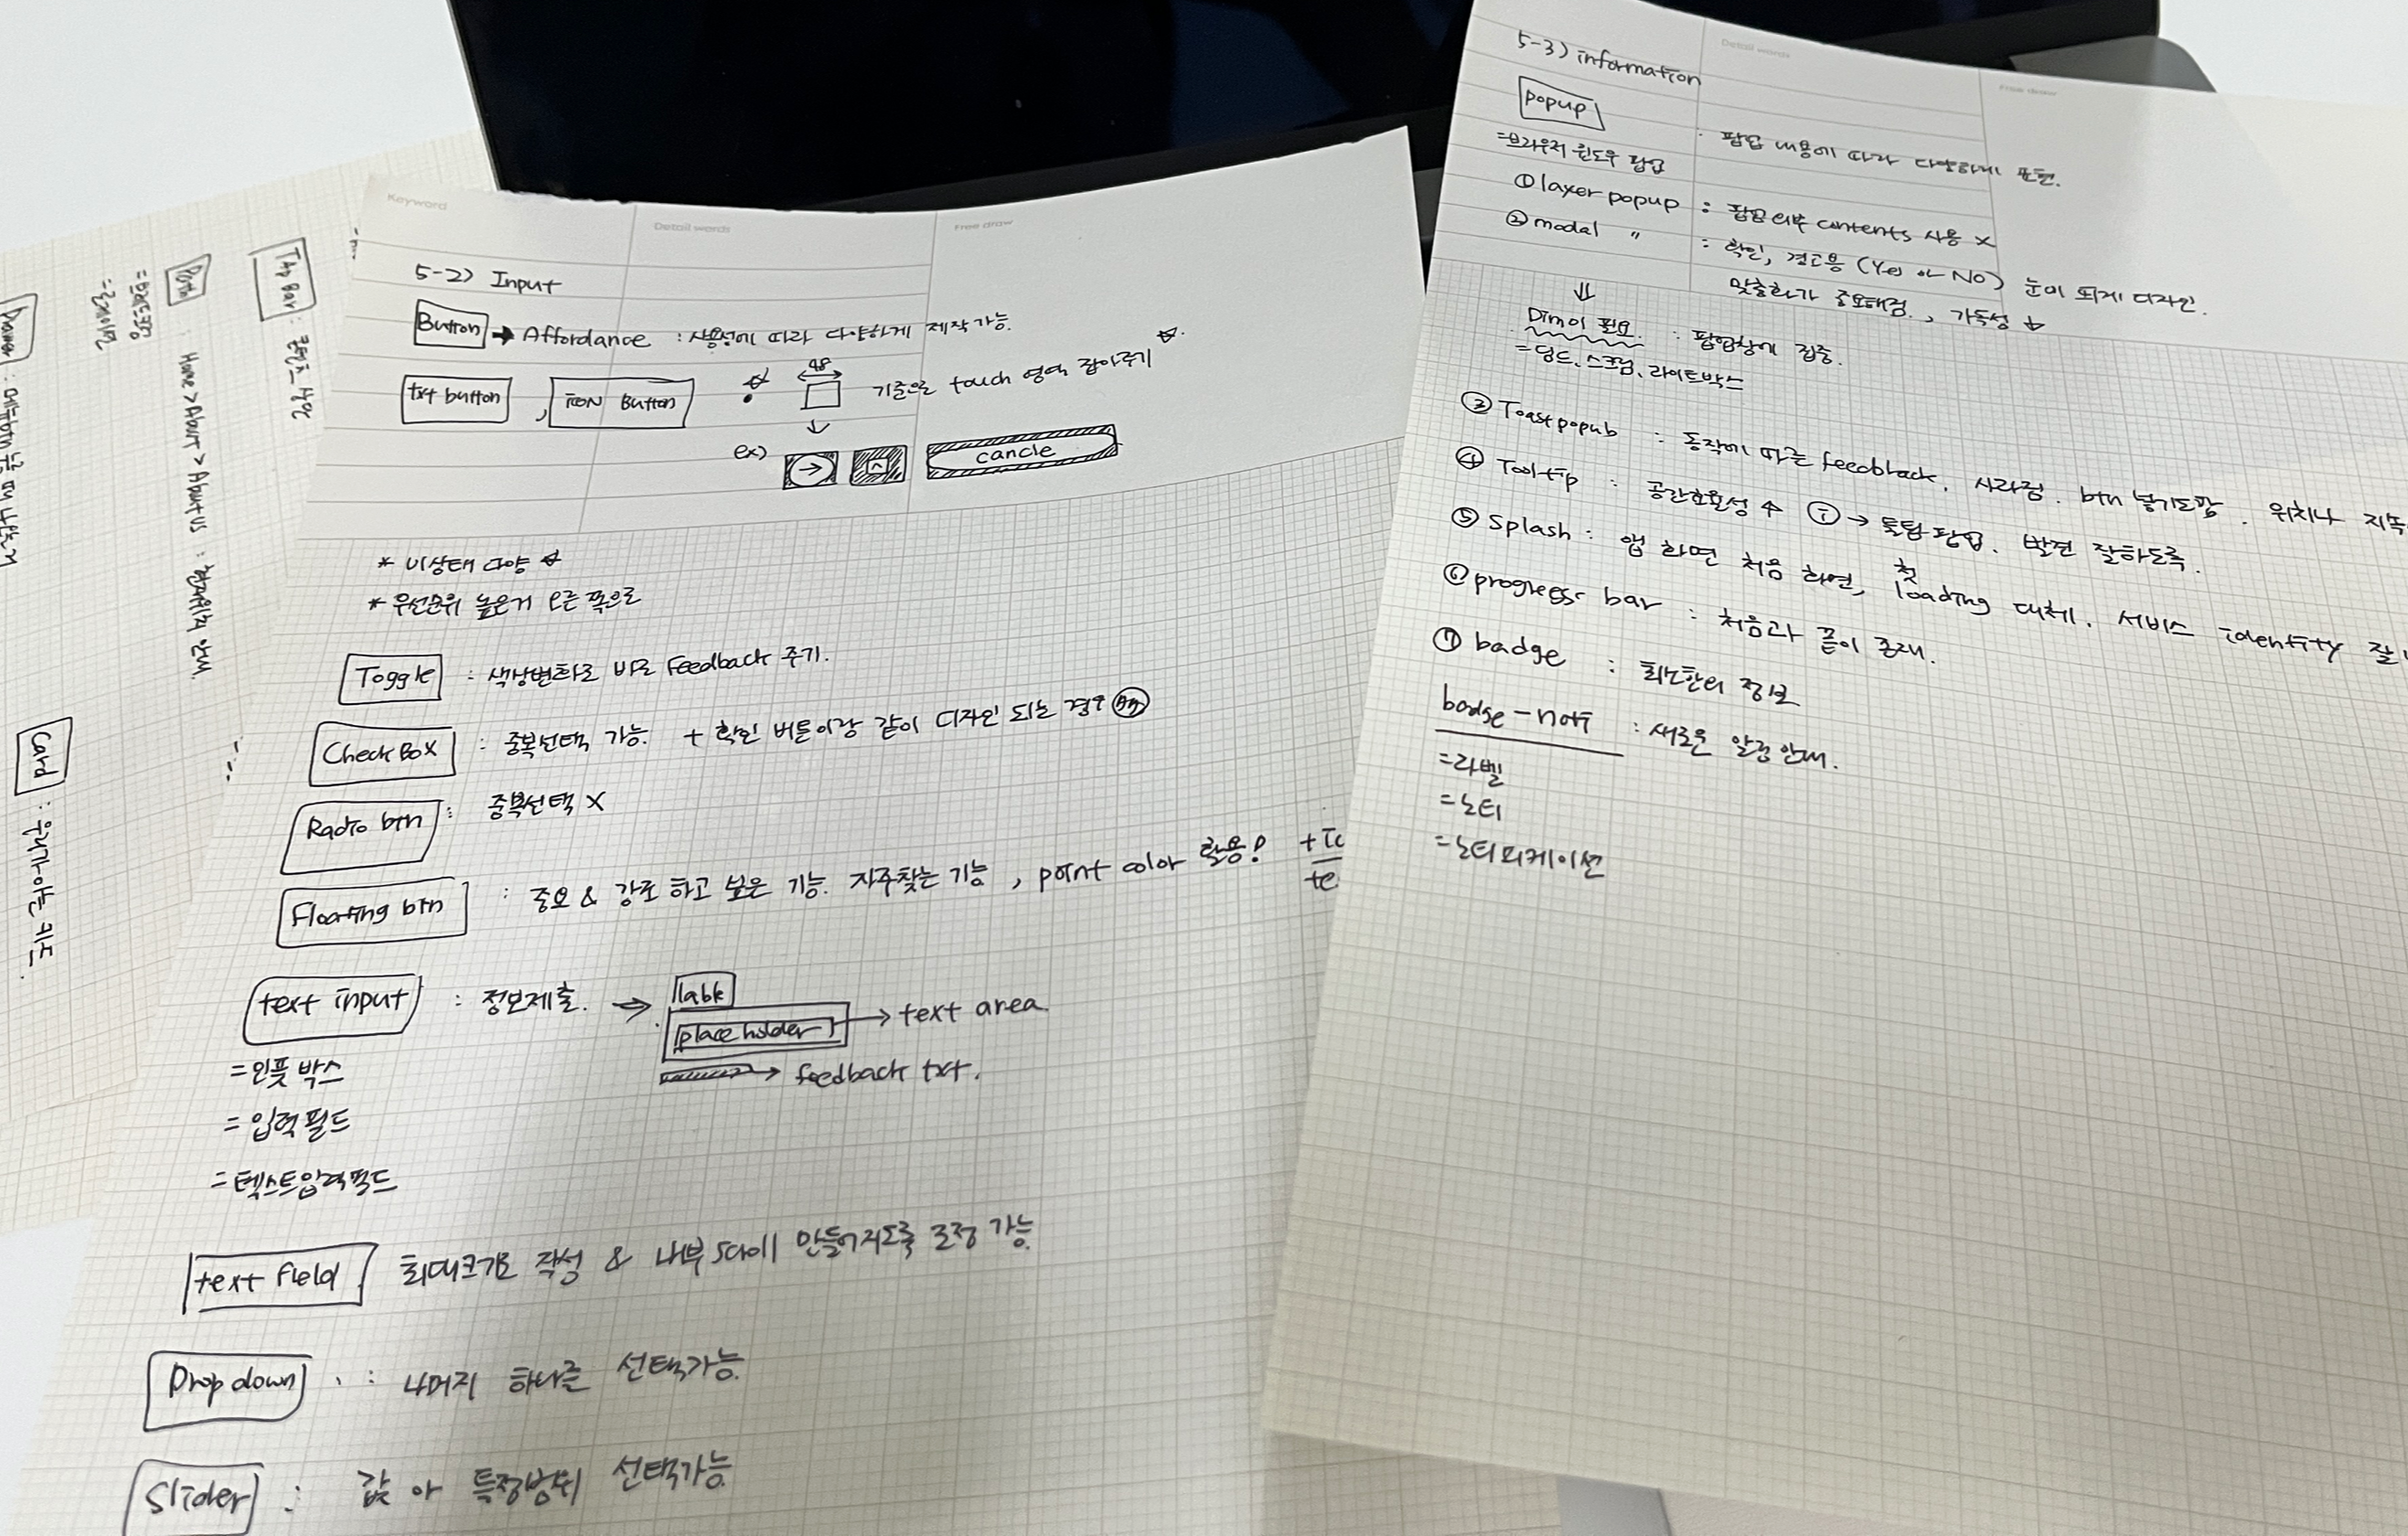 Keyword
Detail words
Free draw
5-2) Input
Button → Affordance : 사용성에 따라 다양하게 제작가능.
txt button , icon Button
48
기준으로 touch 영역 잡아주기
ex) → cancle
* 비상태 다양
* 우선순위 높은거 오른 쪽으로
Toggle : 색상변화로 바로 Feedback 주기.
Check Box : 중복선택 가능. + 확인 버튼이랑 같이 디자인 되는 경우
Radio btn : 중복선택 X
Floating btn : 중요 & 강조 하고 싶은 기능. 자주찾는 기능, point color 활용!
text input : 정보제출. →
place holder → text area
→ feedback txt.
= 인풋 박스
= 입력 필드
= 텍스트입력필드
text field 최대크기로 작성 & 내부 만들어지도록 조정 가능
Drop down : 나머지 하나를 선택가능.
Slider : 값 or 특정범위 선택가능.
Detail words
Free draw
5-3) information
popup : 팝업 내용에 따라 다양하게 표현.
=브라우저 윈도우 팝업
① layer popup : 팝업 외부 contents 사용 X
② modal " : 확인, 경고용 (Yes or No) 눈에 띄게 디자인.
맞춤화가 중요해짐., 가독성
⇓
Dim이 필요. : 팝업창에 집중.
=딤드, 스크림, 라이트박스
③ Toast popub : 동작에 따른 feedback. 사라짐. btn 넣기도함. 위치나
④ Tooltip : 공간효율성 ↑ ⓘ → 툴팁 팝업. 발견 잘하도록.
⑤ Splash : 앱 화면 처음 화면, 첫 loading 대체. 서비스 identity
⑥ progress bar : 처음과 끝이 존재.
⑦ badge : 최소한의 정보
badge - noti : 새로운 알림 안내.
=라벨
=노티
=노티피케이션
Tap Bar :
Home > About > About us : 현재위치 안내.
Card :